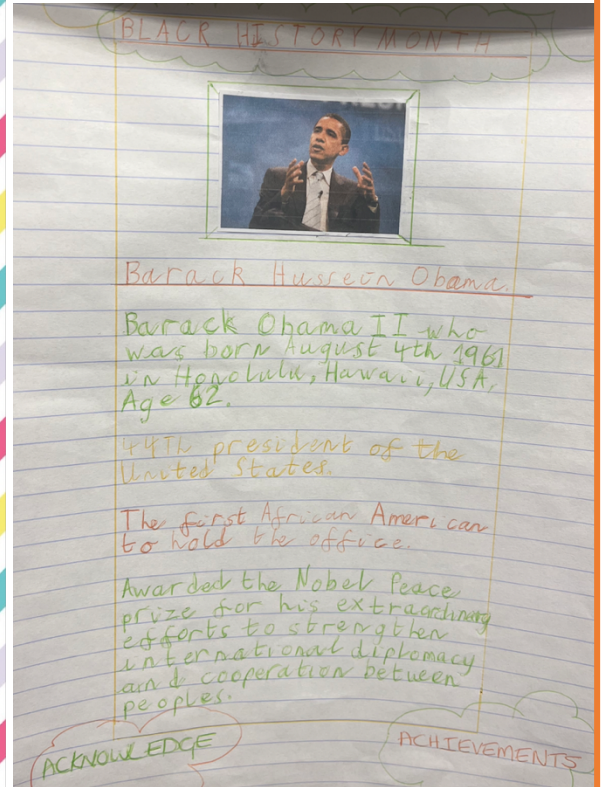 BLACK HISTORY MONTH
Barack Hussein Obama.
Barack Obama II who
was born August 4th 1961
in Honolulu, Hawaii, USA,
Age 62.
44TH president of the
United States.
The first African American
to hold the office.
Awarded the Nobel Peace
prize for his extraordinary
efforts to strengthen
international diplomacy
and cooperation between
peoples.
ACKNOWLEDGE
ACHIEVEMENTS